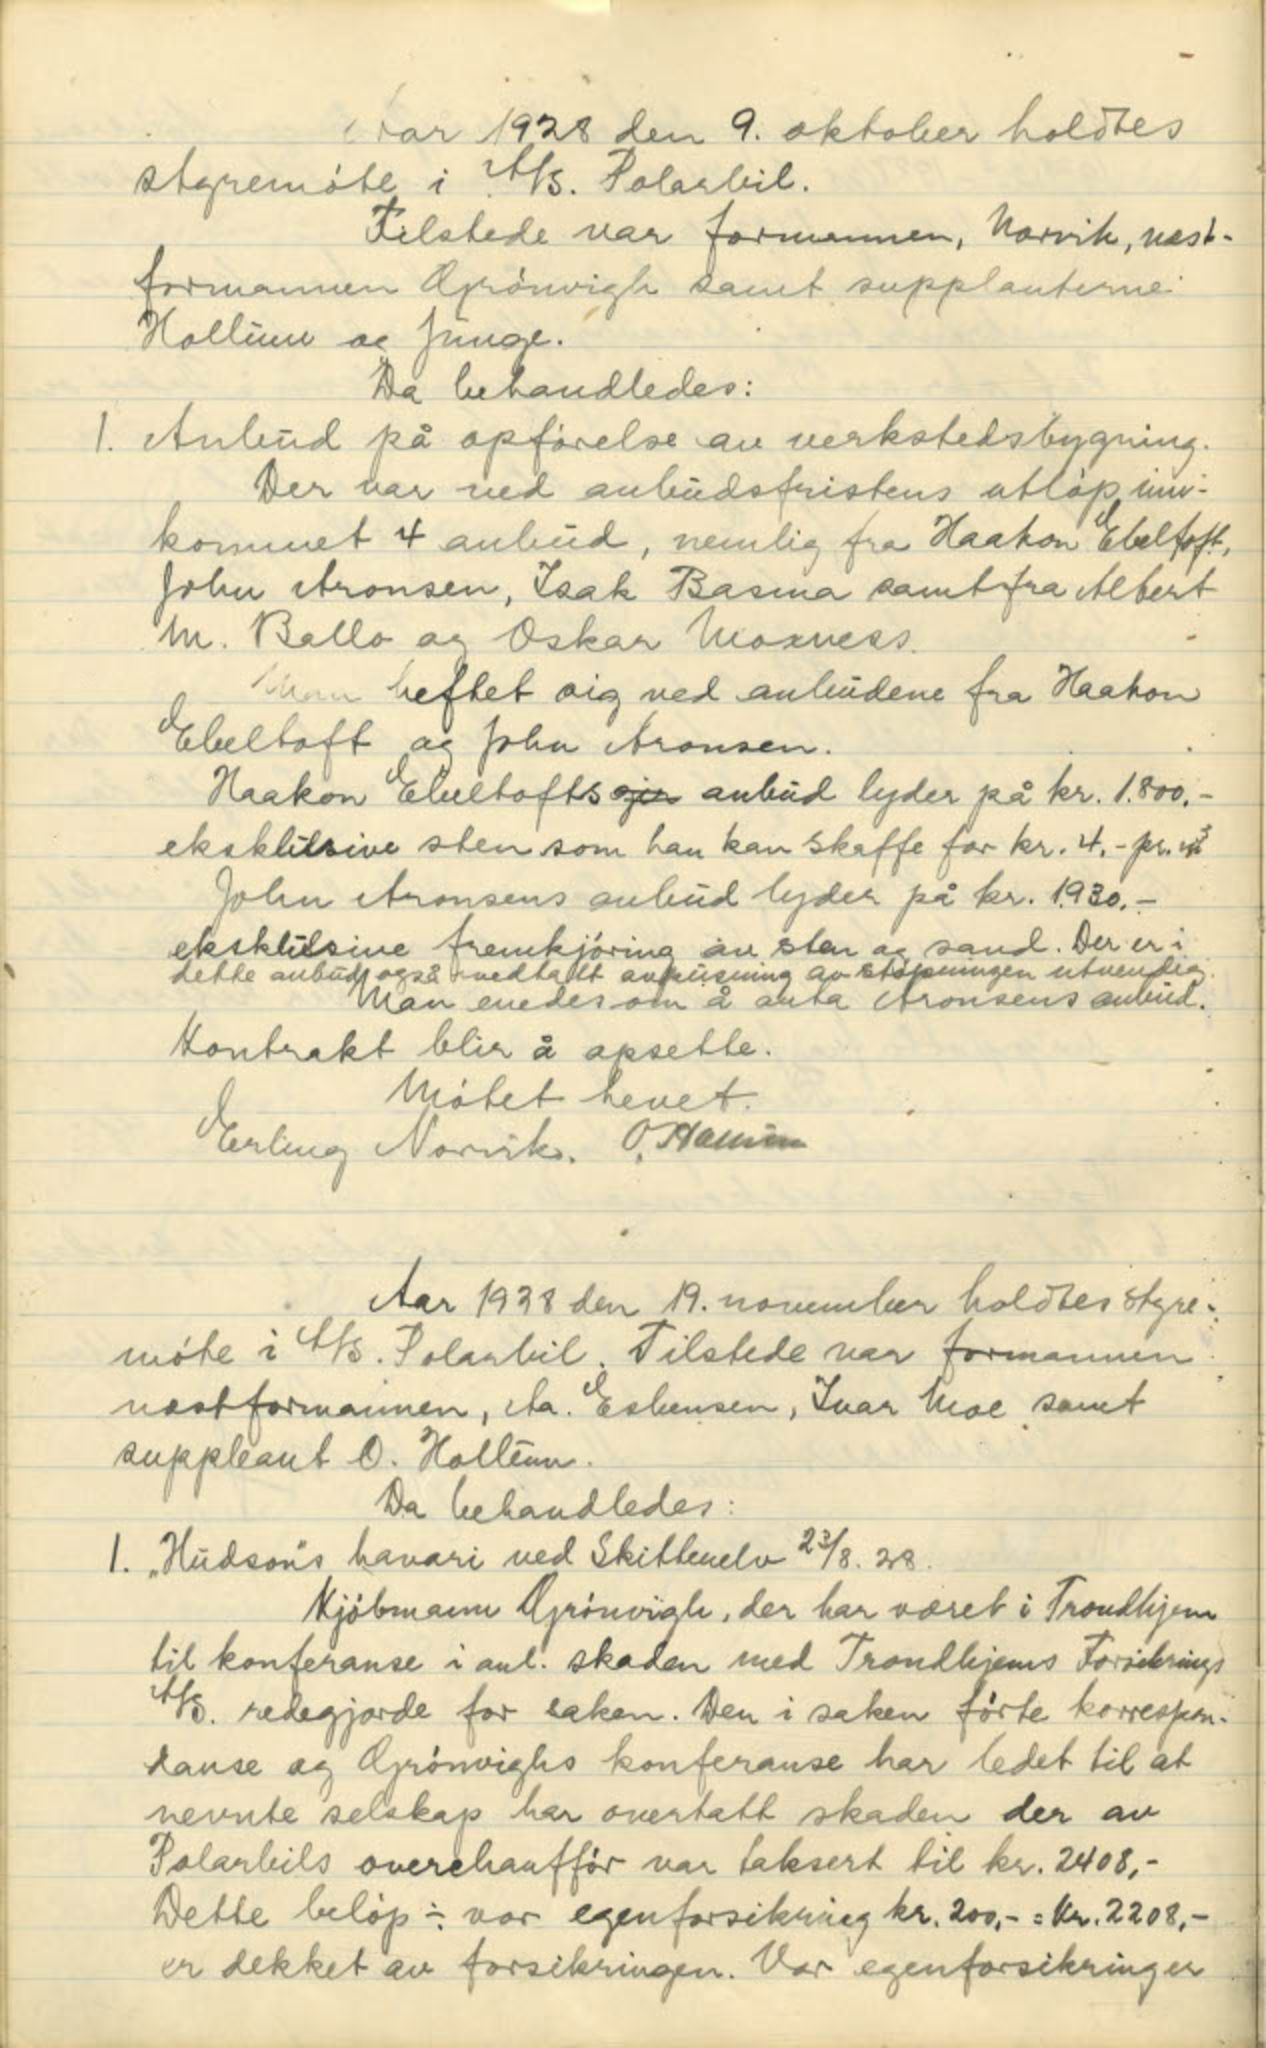 Aar 1928 den 9. oktober holdtes
styremöte i A/S. Polarbil.
Tilstede var formannen, Norvik, næst-
formannen Grönvigh samt supplanterne
Hollum og Junge.
Da behandledes:
1. Anbud på opförelse av verkstedsbygning.
Der var ved anbudsfristens utlöp inn-
kommet 4 anbud, nemlig fra Haakon Ebeltoft,
John Aronsen, Isak Basma samt fra Albert
M. Ballo og Oskar Moxness.
Man heftet sig ved anbudene fra Haakon
Ebeltoft og John Aronsen.
Haakon Ebeltofts anbud lyder på kr. 1.800.-
eksklusive sten som han kan skaffe for kr. 4.- pr. m³
John Aronsens anbud lyder på kr. 1930.-
eksklusive fremkjöring av sten og sand. Der er i
dette anbud også medtatt avpusning av stöpningen utvendig.
Man enedes om å anta Aronsens anbud.
Kontrakt blir å opsette.
Mötet hevet.
Erling Norvik. O. Hollum
Aar 1928 den 19. november holdtes styre-
möte i A/S. Polarbil. Tilstede var formannen
næstformannen, Aa. Esbensen, Ivar Moe samt
suppleant O. Hollum.
Da behandledes:
1. „Hudson"s havari ved Skittenelv 23/8. 28.
Kjöbmann Grönvigh, der har været i Trondhjem
til konferanse i anl. skaden med Trondhjems Forsikrings
A/S. redegjorde for saken. Den i saken förte korrespon-
danse og Grönvighs konferanse har ledet til at
nevnte selskap har overtatt skaden der av
Polarbils overchaufför var taksert til kr. 2408,-
Dette belöp ÷ vor egenforsikring kr. 200,- = Kr. 2208,-
er dekket av forsikringen. Vor egenforsikring er